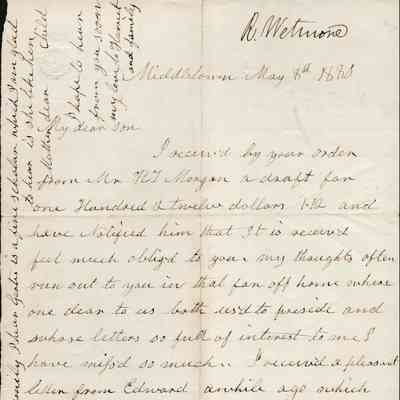 R. Wetmore
Middletown May 8th 18
My dear Son
I receiv'd by your order
from Mr H J Morgan a draft for
one Hundred & twelve dollars and
have Notified him that It is receiv'd
feel much oblig'd to you my thoughts often
run out to you in that far off home where
one dear to us both us'd to preside and
whose letters so full of interest to me I
have miss'd so much. I receiv'd a pleasant
letter from Edward awhile ago which
I hope to hear
from you soon
my love to
and family
is a fine scholar which I am glad
to hear is she like her
Mother dear Child